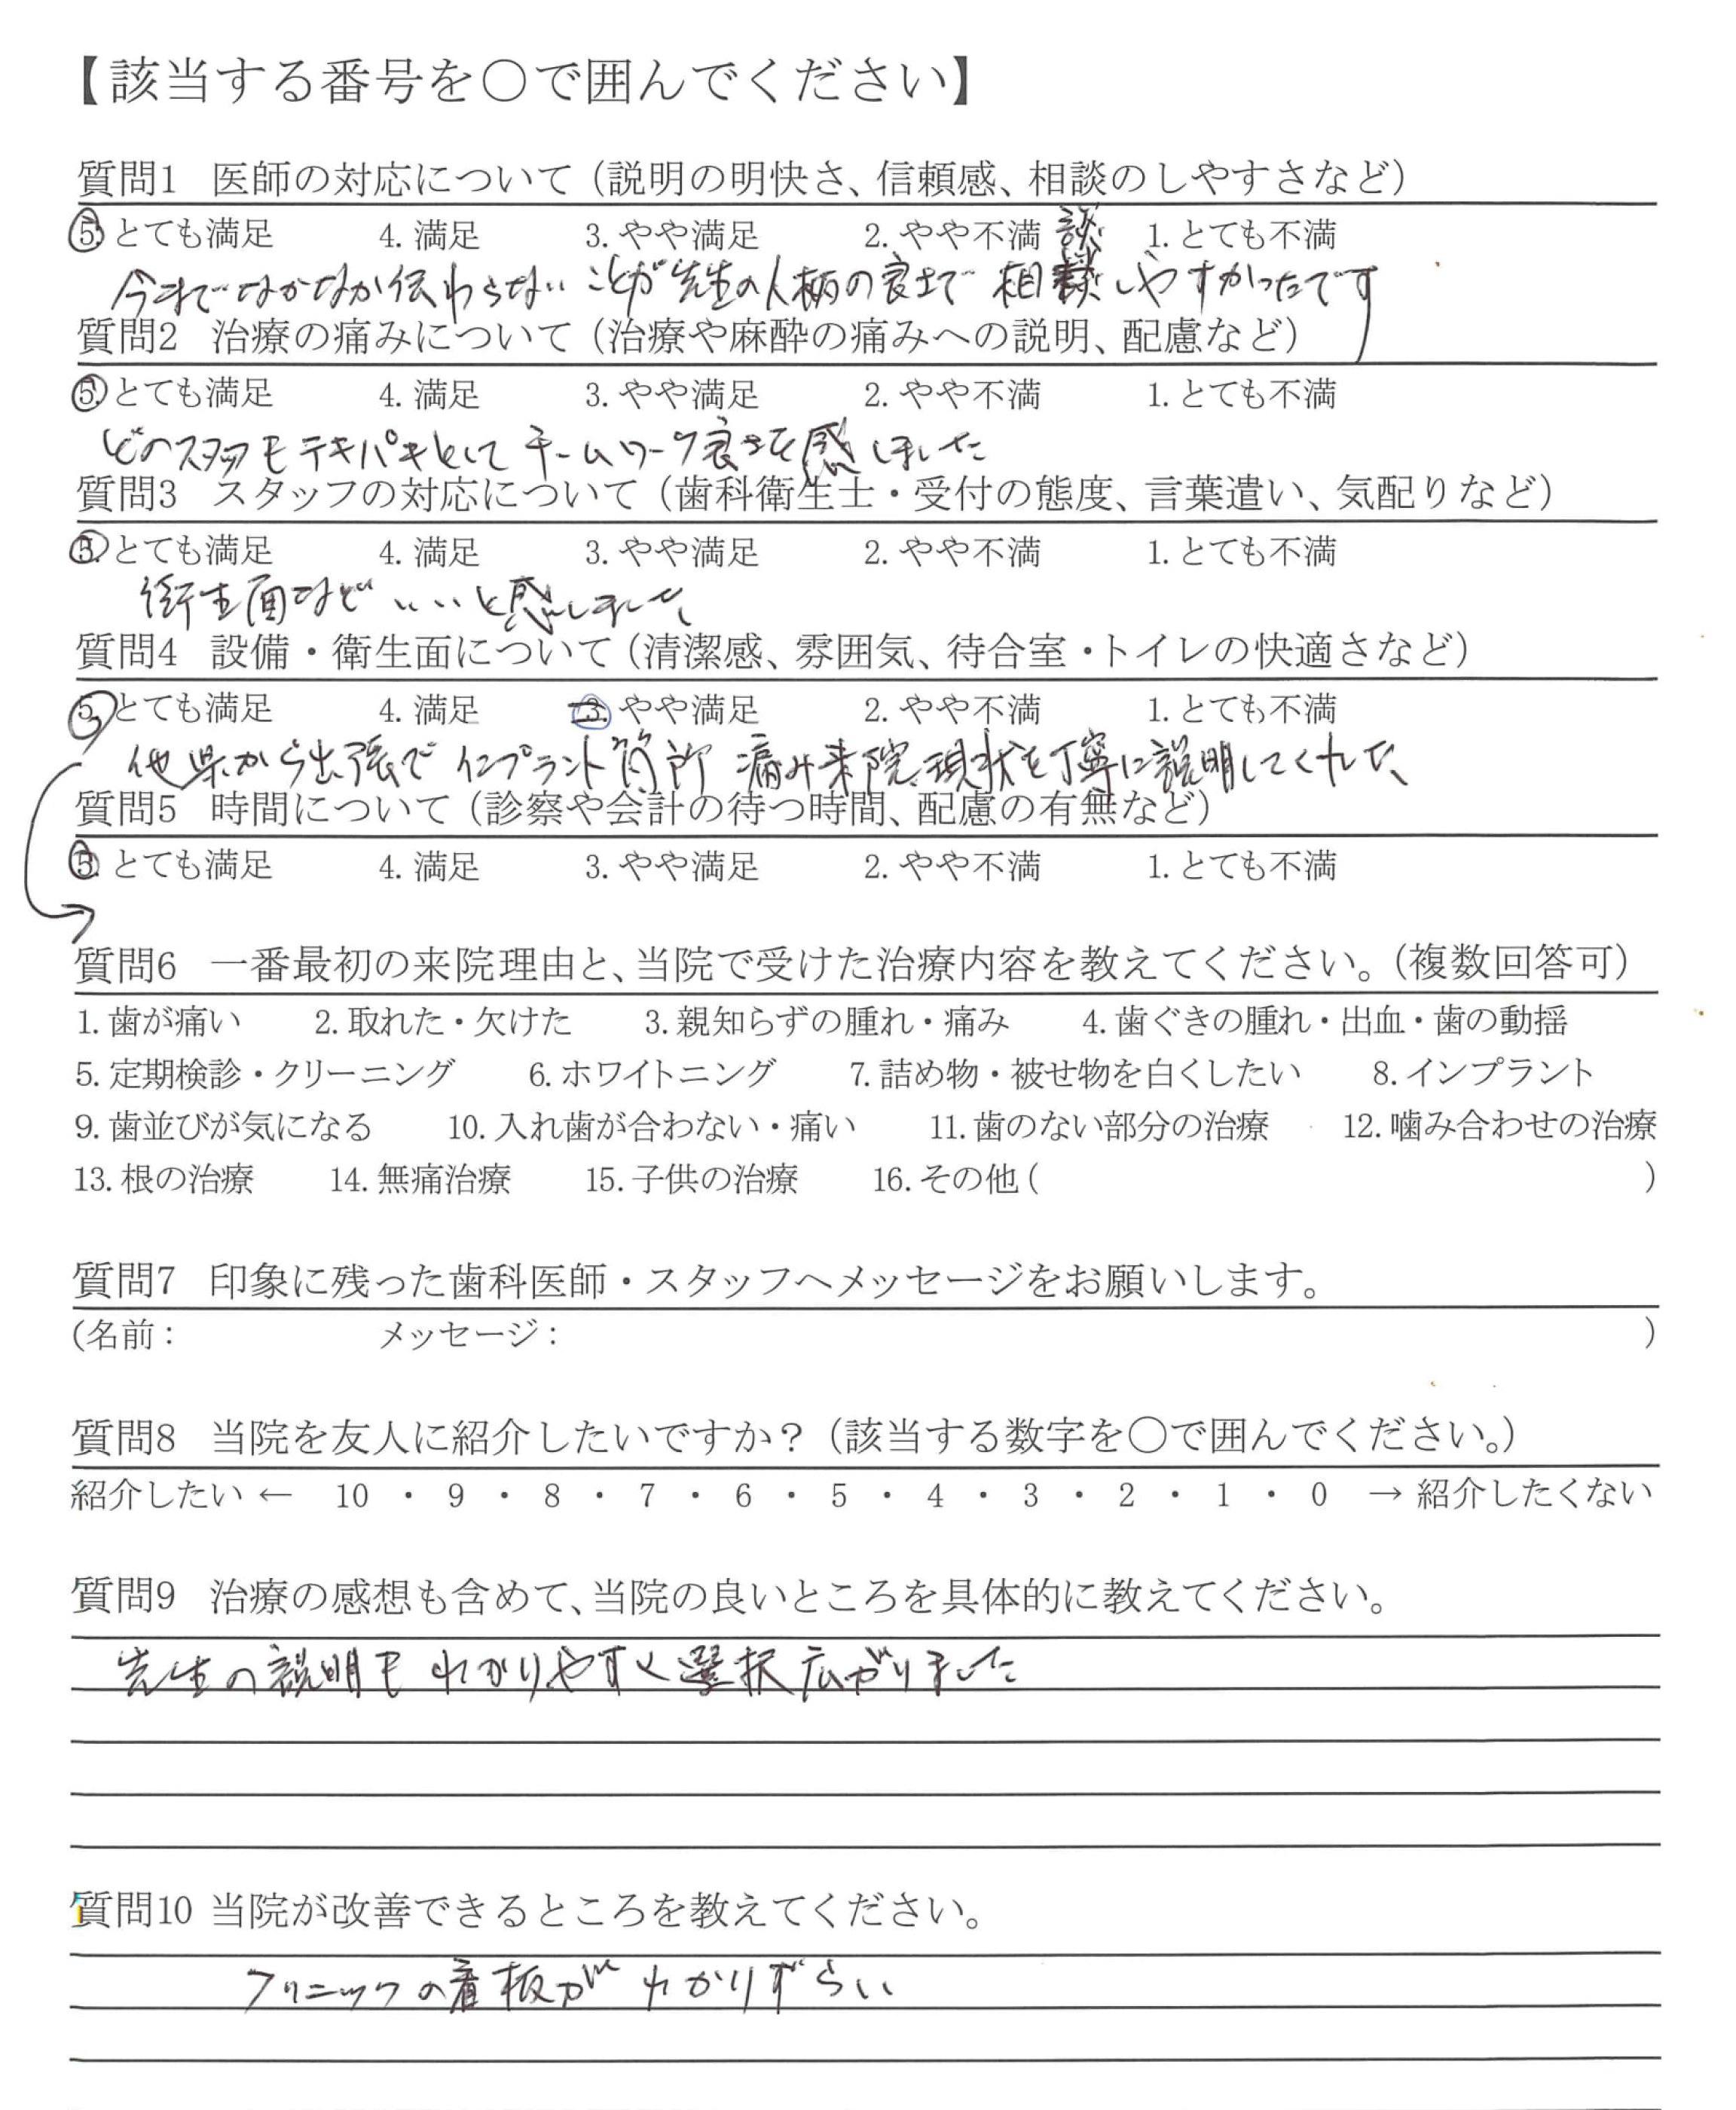 【該当する番号を〇で囲んでください】
質問1 医師の対応について（説明の明快さ、信頼感、相談のしやすさなど）
5. とても満足 4. 満足 3. やや満足 2. やや不満 1. とても不満
談
今までなかなか伝わらないことが先生の人柄の良さで 相談しやすかったです
質問2 治療の痛みについて（治療や麻酔の痛みへの説明、配慮など）
5. とても満足 4. 満足 3. やや満足 2. やや不満 1. とても不満
どのスタッフもテキパキとして チームワーク良さを感じました
質問3 スタッフの対応について（歯科衛生士・受付の態度、言葉遣い、気配りなど）
5. とても満足 4. 満足 3. やや満足 2. やや不満 1. とても不満
衛生面など いいと感じました
質問4 設備・衛生面について（清潔感、雰囲気、待合室・トイレの快適さなど）
5. とても満足 4. 満足 3. やや満足 2. やや不満 1. とても不満
他県から出張で インプラント箇所 痛み来院 現状を丁寧に説明してくれた
質問5 時間について（診察や会計の待つ時間、配慮の有無など）
5. とても満足 4. 満足 3. やや満足 2. やや不満 1. とても不満
質問6 一番最初の来院理由と、当院で受けた治療内容を教えてください。（複数回答可）
1. 歯が痛い 2. 取れた・欠けた 3. 親知らずの腫れ・痛み 4. 歯ぐきの腫れ・出血・歯の動揺
5. 定期検診・クリーニング 6. ホワイトニング 7. 詰め物・被せ物を白くしたい 8. インプラント
9. 歯並びが気になる 10. 入れ歯が合わない・痛い 11. 歯のない部分の治療 12. 噛み合わせの治療
13. 根の治療 14. 無痛治療 15. 子供の治療 16. その他 ( )
質問7 印象に残った歯科医師・スタッフへメッセージをお願いします。
(名前： メッセージ： )
質問8 当院を友人に紹介したいですか？（該当する数字を〇で囲んでください。）
紹介したい ← 10 ・ 9 ・ 8 ・ 7 ・ 6 ・ 5 ・ 4 ・ 3 ・ 2 ・ 1 ・ 0 → 紹介したくない
質問9 治療の感想も含めて、当院の良いところを具体的に教えてください。
先生の説明もわかりやすく選択広がりました
質問10 当院が改善できるところを教えてください。
クリニックの看板がわかりずらい